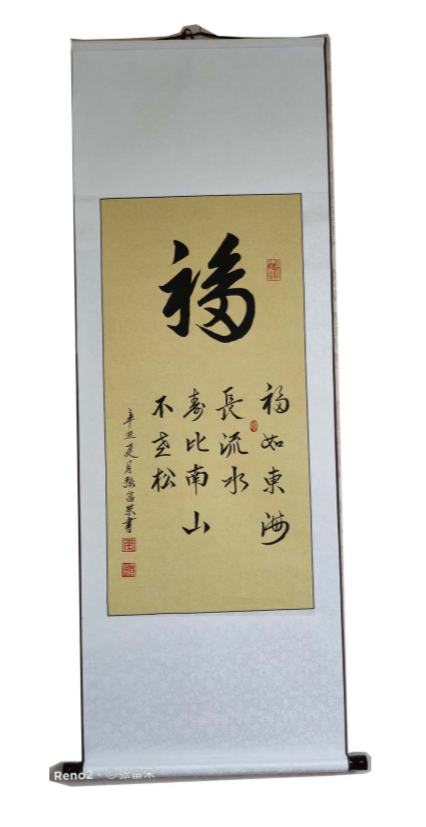 福
福如東海
長流水
寿比南山
不老松
辛丑夏月张富荣書
Reno2 · ©张富荣